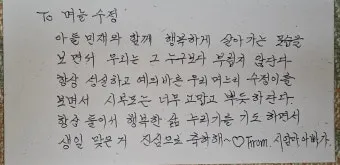 To 며늘 수정
아들 민재와 함께 행복하게 살아가는 모습을
보면서 우리는 그 누구보다 부럽지 않단다.
항상 성실하고 예의바른 우리며느리 수정이를
보면서 시부모는 너무 고맙고 뿌듯하단다.
항상 둘이서 행복한 삶 누리기를 기도하면서
생일 맞은거 진심으로 축하해~♡ From. 시엄마아빠가.